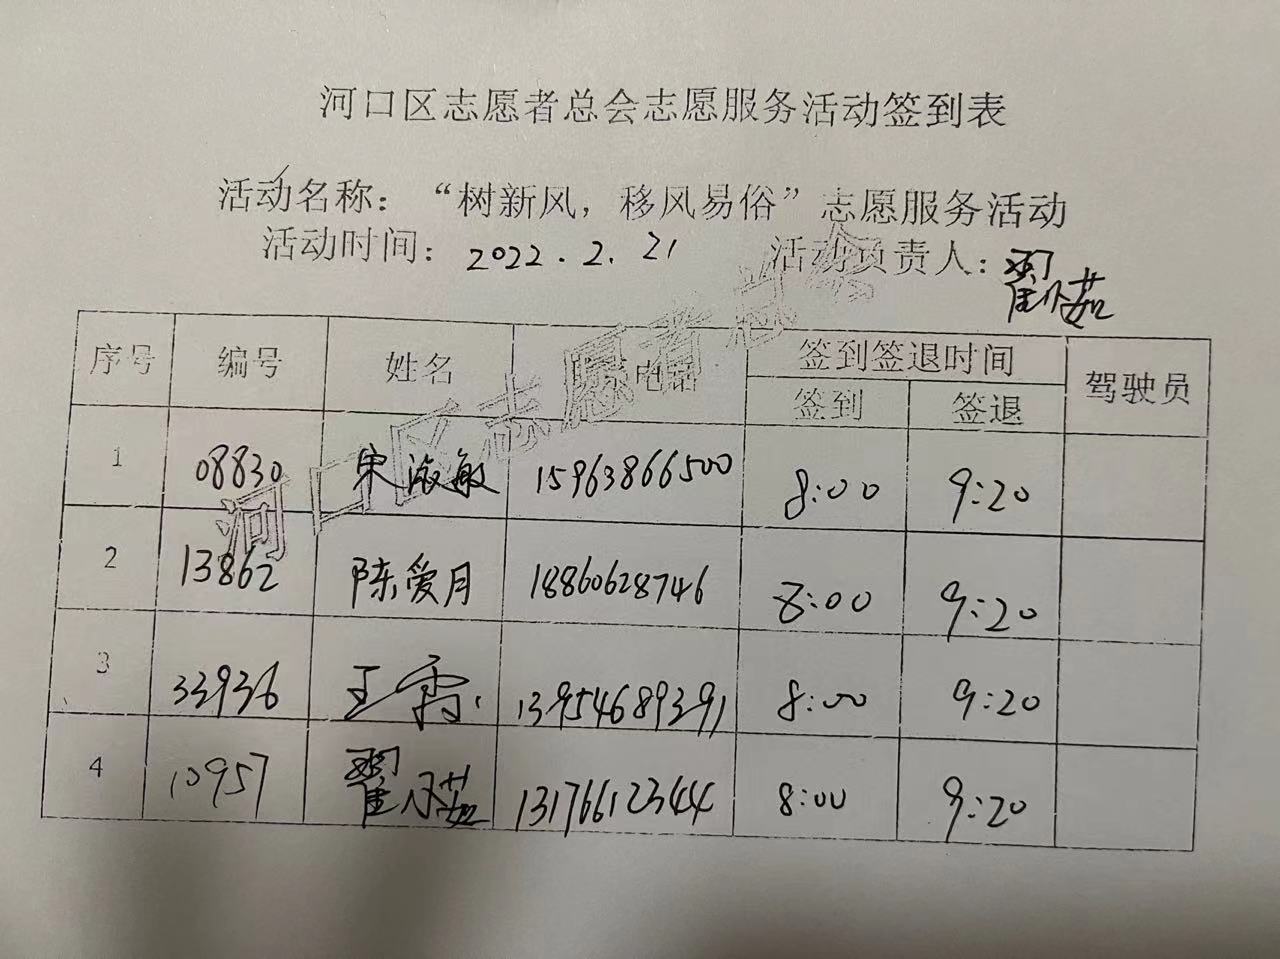 河口区志愿者总会志愿服务活动签到表
活动名称：“树新风，移风易俗”志愿服务活动
活动时间：2022.2.21 活动负责人：翟小茹
序号 编号 姓名 电话 签到签退时间 驾驶员
签到 签退
1 08830 宋淑敏 15963866500 8:00 9:20
2 13862 陈爱月 18860628746 8:00 9:20
3 33936 王霞 13954689391 8:00 9:20
4 10957 翟小茹 13176612344 8:00 9:20
河口区志愿者总会